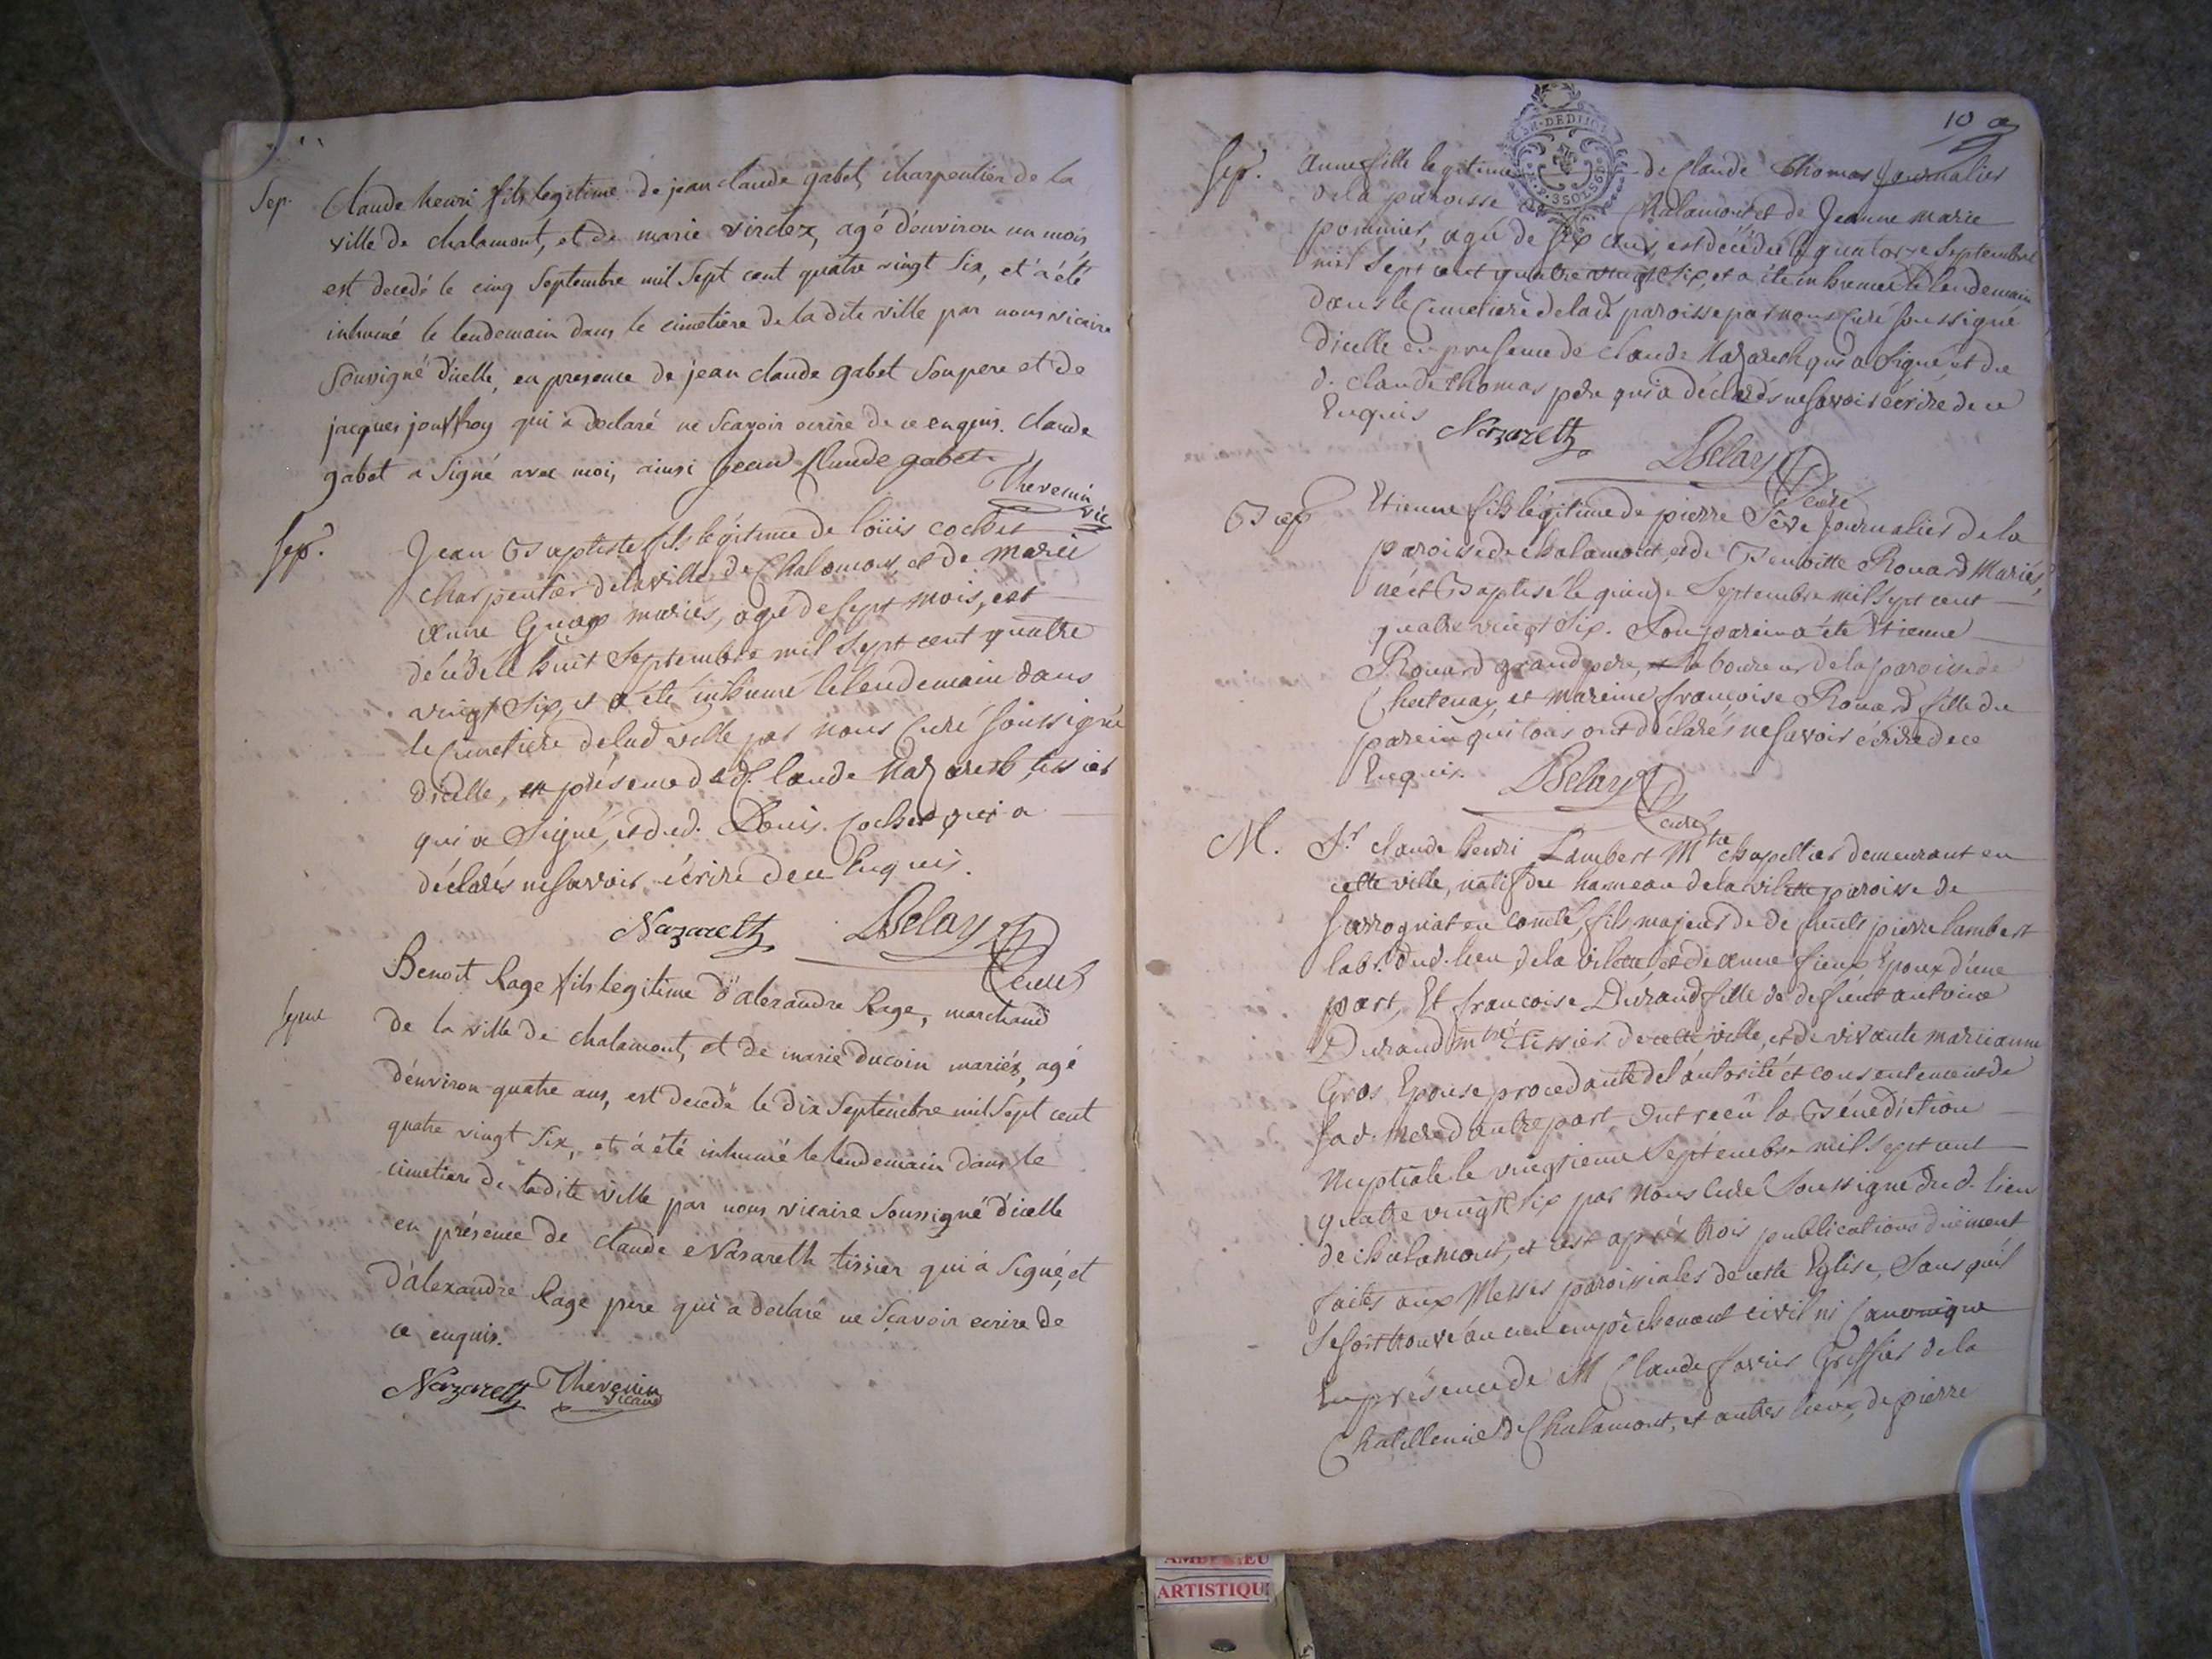 Sep. Claude henri fils legitime de jean claude gabet, charpentier de la
ville de chalamont, et de marie virdex, agé d'environ un mois,
est decedé le cinq Septembre mil Sept cent quatre vingt Six, et à été
inhumé le lendemain dans le cimetiere de la dite ville par nous vicaire
Soussigné d'icelle, en presence de jean claude gabet Son pere et de
jacques jouffroy qui à declaré ne Scavoir ecrire de ce enquis. Claude
gabet a Signé avec moi, ainsi jean Claude gabet
Thevenin
vic
Sep. Jean Baptiste fils légitime de loüis cochet
charpentier de la ville de Chalamont, et de Marie
anne mariés, agé de sept mois, est
décédé le huit Septembre mil Sept cent quatre
vingt Six, et a été inhumé le lendemain dans
le Cimetiere de lad ville par nous Curé Soussigné
d'icelle, en présence de Claude Nazareth tissier
qui a Signé, et dud. Louis Cochet qui a
déclarés ne savoir écrire de ce Enquis.
Nazareth Delay
Curé
Sepme Benoit Rage fils legitime d'alexandre Rage, marchand
de la ville de chalamont, et de marie ducoin mariés, agé
d'environ quatre ans, est decedé le dix Septembre mil Sept cent
quatre vingt Six, et à été inhumé le lendemain dans le
cimetiere de la dite ville par nous vicaire Soussigné d'icelle
en présence de claude Nasareth tissier qui à Signé, et
d'alexandre Rage pere qui a declaré ne Scavoir ecrire de
ce enquis.
Nazareth Thevenin
vicaire
10
Sep. Anne fille legitime de Claude Thomas Journalier
de la paroisse Chalamont et de Jeanne Marie
pommier, agée de six ans, est décédée le quatorze Septembre
mil Sept cent quatre vingt Six, et a été inhumée le lendemain
dans le Cimetiere de lad. paroisse par nous Curé Soussigné
d'icelle en presence de Claude Nazareth qui a Signé, et du
d. Claude thomas père qui a déclarés ne savoir écrire de ce
Enquis Nazareth Delay
Curé
Bap Etienne fils légitime de pierre Sève Journalier de la
paroisse de chalamont, et de Benoitte Rouard Mariés,
né et Baptisé le quinze Septembre mil Sept cent
quatre vingt Six. Son parein a été Etienne
Rouard grand pere, laboureur de la paroisse de
Chatenay, et Mareine françoise Rouard fille du
parein qui tous ont déclarés ne savoir écrire de ce
Enquis. Delay
Curé
M. Sr claude henri Lambert Mtre chapellier demeurant en
cette ville, natif du hameau de la vilette paroisse de
Sarrogniat en comté, fils majeur de defunts pierre lambert
labr. dud. lieu de la vilette, et de anne Epoux d'une
part, Et francoise Durand fille de defunt antoine
Durand mtre tissier de cette ville, et de vivante marie anne
Gros Epouse procedante de l'autorité et consentement de
Sad. mere d'autre part, Ont reçû la Bénédiction
Nuptiale le vingtieme Septembre mil Sept cent
quatre vingt Six par Nous Curé Soussigné dud. lieu
de chalamont, et cest aprés trois publications düement
faites aux Messes paroissiales de cette Eglise, Sans qu'il
Se soit trouvé aucun empechement civil ni Canonique
En présence de M Claude favier Greffier de la
Chatellenie de Chalamont, et autres lieux, de pierre
AMBERIEU
ARTISTIQU